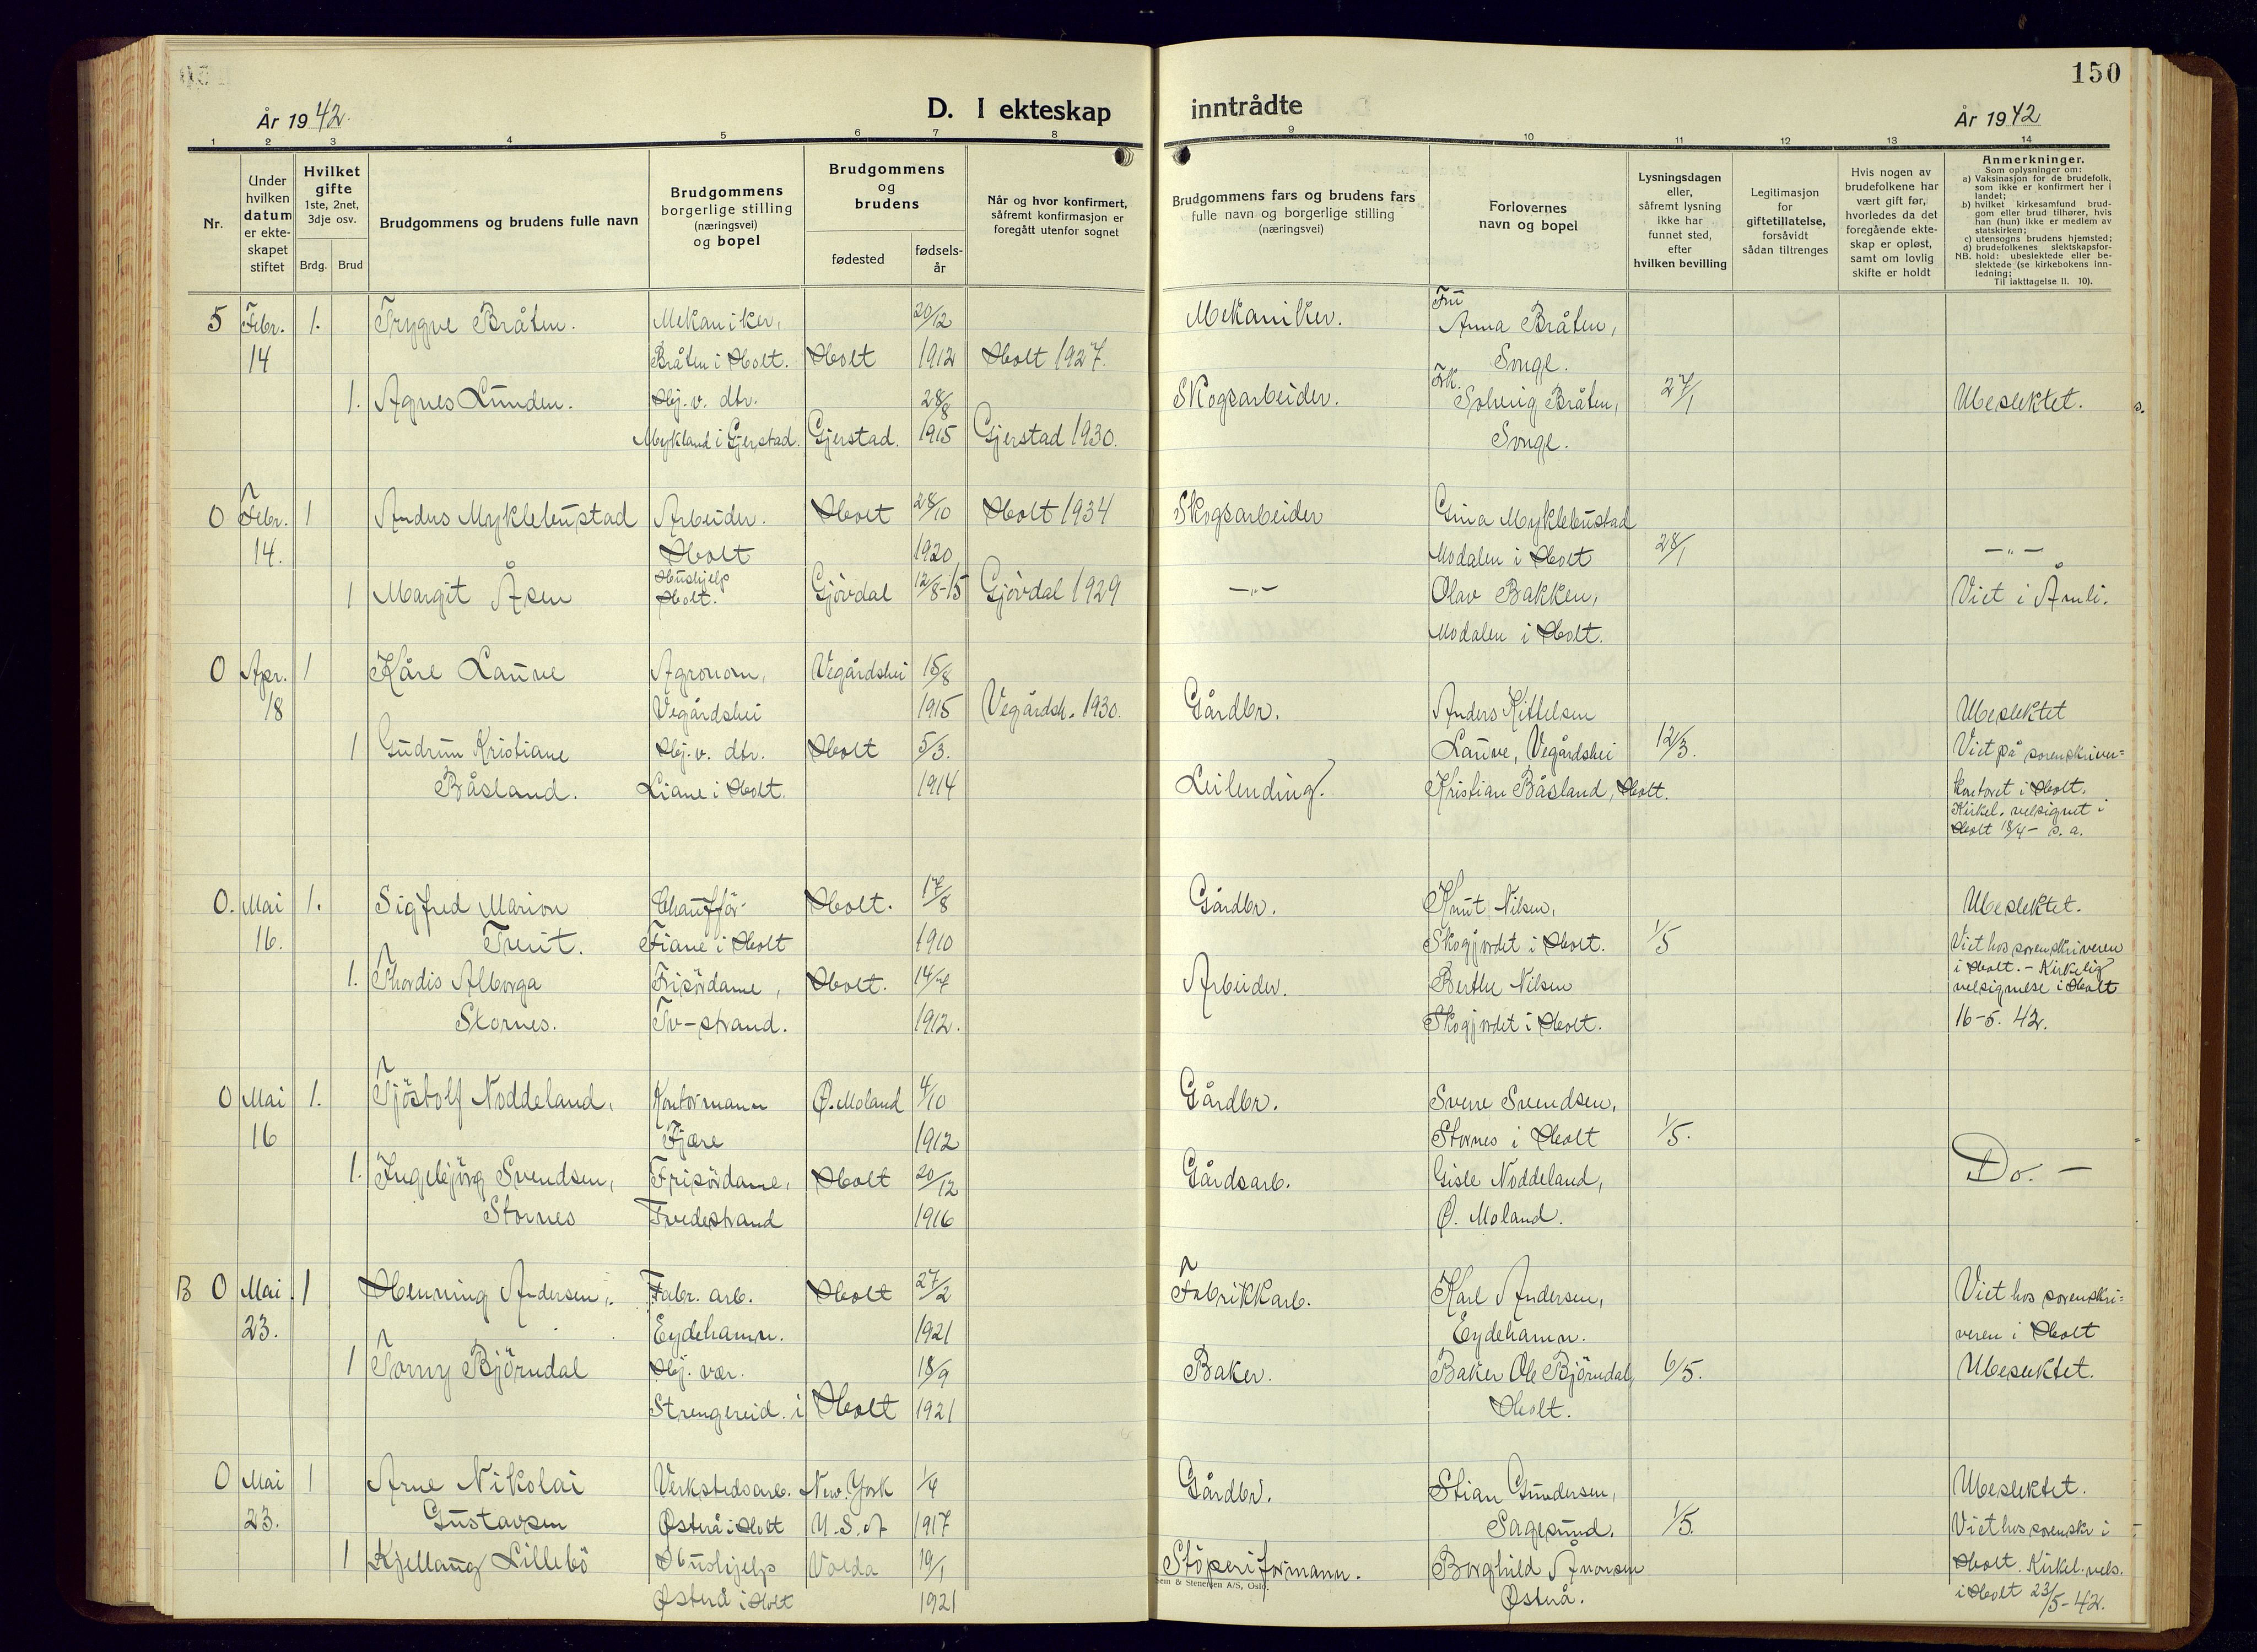 150
År 1942.
D. I ekteskap inntrådte
År 1942
1 2 3 4 5 6 7 8 9 10 11 12 13 14
Nr.
Under hvilken datum er ekte-skapet stiftet
Hvilket gifte 1ste, 2net, 3dje osv.
Brdg. Brud
Brudgommens og brudens fulle navn
Brudgommens borgerlige stilling (næringsvei) og bopel
Brudgommens og brudens
fødested
fødsels-år
Når og hvor konfirmert, såfremt konfirmasjon er foregått utenfor sognet
Brudgommens fars og brudens fars fulle navn og borgerlige stilling (næringsvei)
Forlovernes navn og bopel
Lysningsdagen eller, såfremt lysning ikke har funnet sted, efter hvilken bevilling
Legitimasjon for giftetillatelse, forsåvidt sådan tiltrenges
Hvis nogen av brudefolkene har vært gift før, hvorledes da det foregående ekte-skap er opløst, samt om lovlig skifte er holdt
Anmerkninger.
Som oplysninger om:
a) Vaksinasjon for de brudefolk, som ikke er konfirmert her i landet;
b) hvilket kirkesamfund brud-gom eller brud tilhører, hvis han (hun) ikke er medlem av statskirken;
c) utensogns brudens hjemsted;
d) brudefolkenes slektskapsfor-hold: ubeslektede eller be-slektede (se kirkebokens inn-ledning;
NB. Til iakttagelse II. 10).
5 Febr. 1. Trygve Bråten. Mekaniker, 20/12 Mekaniker. Fru Anna Bråten,
14 Bråten i Holt. Holt 1912 Holt 1927. Songe.
1. Agnes Lunden. Hj. v. dtr. 28/8 Skogsarbeider. Frk. Solveig Bråten, 27/1 Ubeslektet.
Mykland i Gjerstad. Gjerstad. 1915 Gjerstad 1930. Songe.
0 Febr. 1 Anders Myklebustad Arbeider. Holt 28/10 Holt 1934 Skogsarbeider Gina Myklebustad
14. Holt 1920 Modalen i Holt 28/1 — " —
1 Margit Åsen Hushjelp Holt. Gjövdal 12/8-15 Gjövdal 1929 — " — Olav Bakken, Viet i Åmli.
Modalen i Holt.
0 Apr. 1 Kåre Lauve Agronom, Vegårdshei 15/8
18 Vegårdshei 1915 Vegårdsh. 1930. Gårdbr. Anders Kittelsen Ubeslektet
1 Gudrun Kristiane Hj. v. dtr. Holt 5/3. Lauve, Vegårdshei 12/3. Viet på sorenskriver=
Båsland. Liane i Holt. 1914 Leilending. Kristian Båsland, Holt. kontoret i Holt.
Kirkel. velsignet i
Holt 18/4 - s. a.
0. Mai 1. Sigfred Marion Chaufför Holt. 17/8 Gårdbr. Knut Nilsen, Ubeslektet.
16. Treit. Fiane i Holt 1910 Skogjordet i Holt. 1/5 Viet hos sorenskriveren
1. Thordis Alborga Frisördame, Holt. 14/4 Arbeider. Berthe Nilsen i Holt. - Kirkelig velsignelse i Holt
Stornes. Tv-strand. 1912. Skogjordet i Holt. 16-5. 42.
0 Mai 1. Tjöstolf Noddeland, Kontormann Ø. Moland 4/10 Gårdbr. Sverre Svendsen,
16 Fjære 1912 Stornes i Holt 1/5.
1. Ingebjörg Svendsen, Frisördame, Holt 20/12 Gårdsarb. Gisle Noddeland, Do. —
Stornes Tvedestrand 1916 Ø. Moland.
B 0 Mai 1 Henning Andersen, Fabr. arb. Holt 27/2 Fabrikkarb. Karl Andersen, Viet hos sorenskri=
23. Eydehamn. 1921 Eydehamn. veren i Holt
1 Torny Björndal Hj. vær. 18/9 Baker. Baker Ole Björndal, 6/5. Ubeslektet.
Strengereid. i Holt 1921 Holt.
0 Mai 1 Arne Nikolai Verkstedsarb. New. York 1/6 Gårdbr. Stian Gundersen, Ubeslektet.
23. Gustavsen Østerå i Holt U.S.A 1917 Sagesund. 1/5. Viet hos sorenskr i
1 Kjellaug Lillebö Hushjelp Volda 19/1 Støperiformann. Borghild Aronsen Holt. Kirkel. vels.
Østerå i Holt 1921 Østerå. i Holt 23/5-42.
Sem & Stenersen A/S, Oslo.